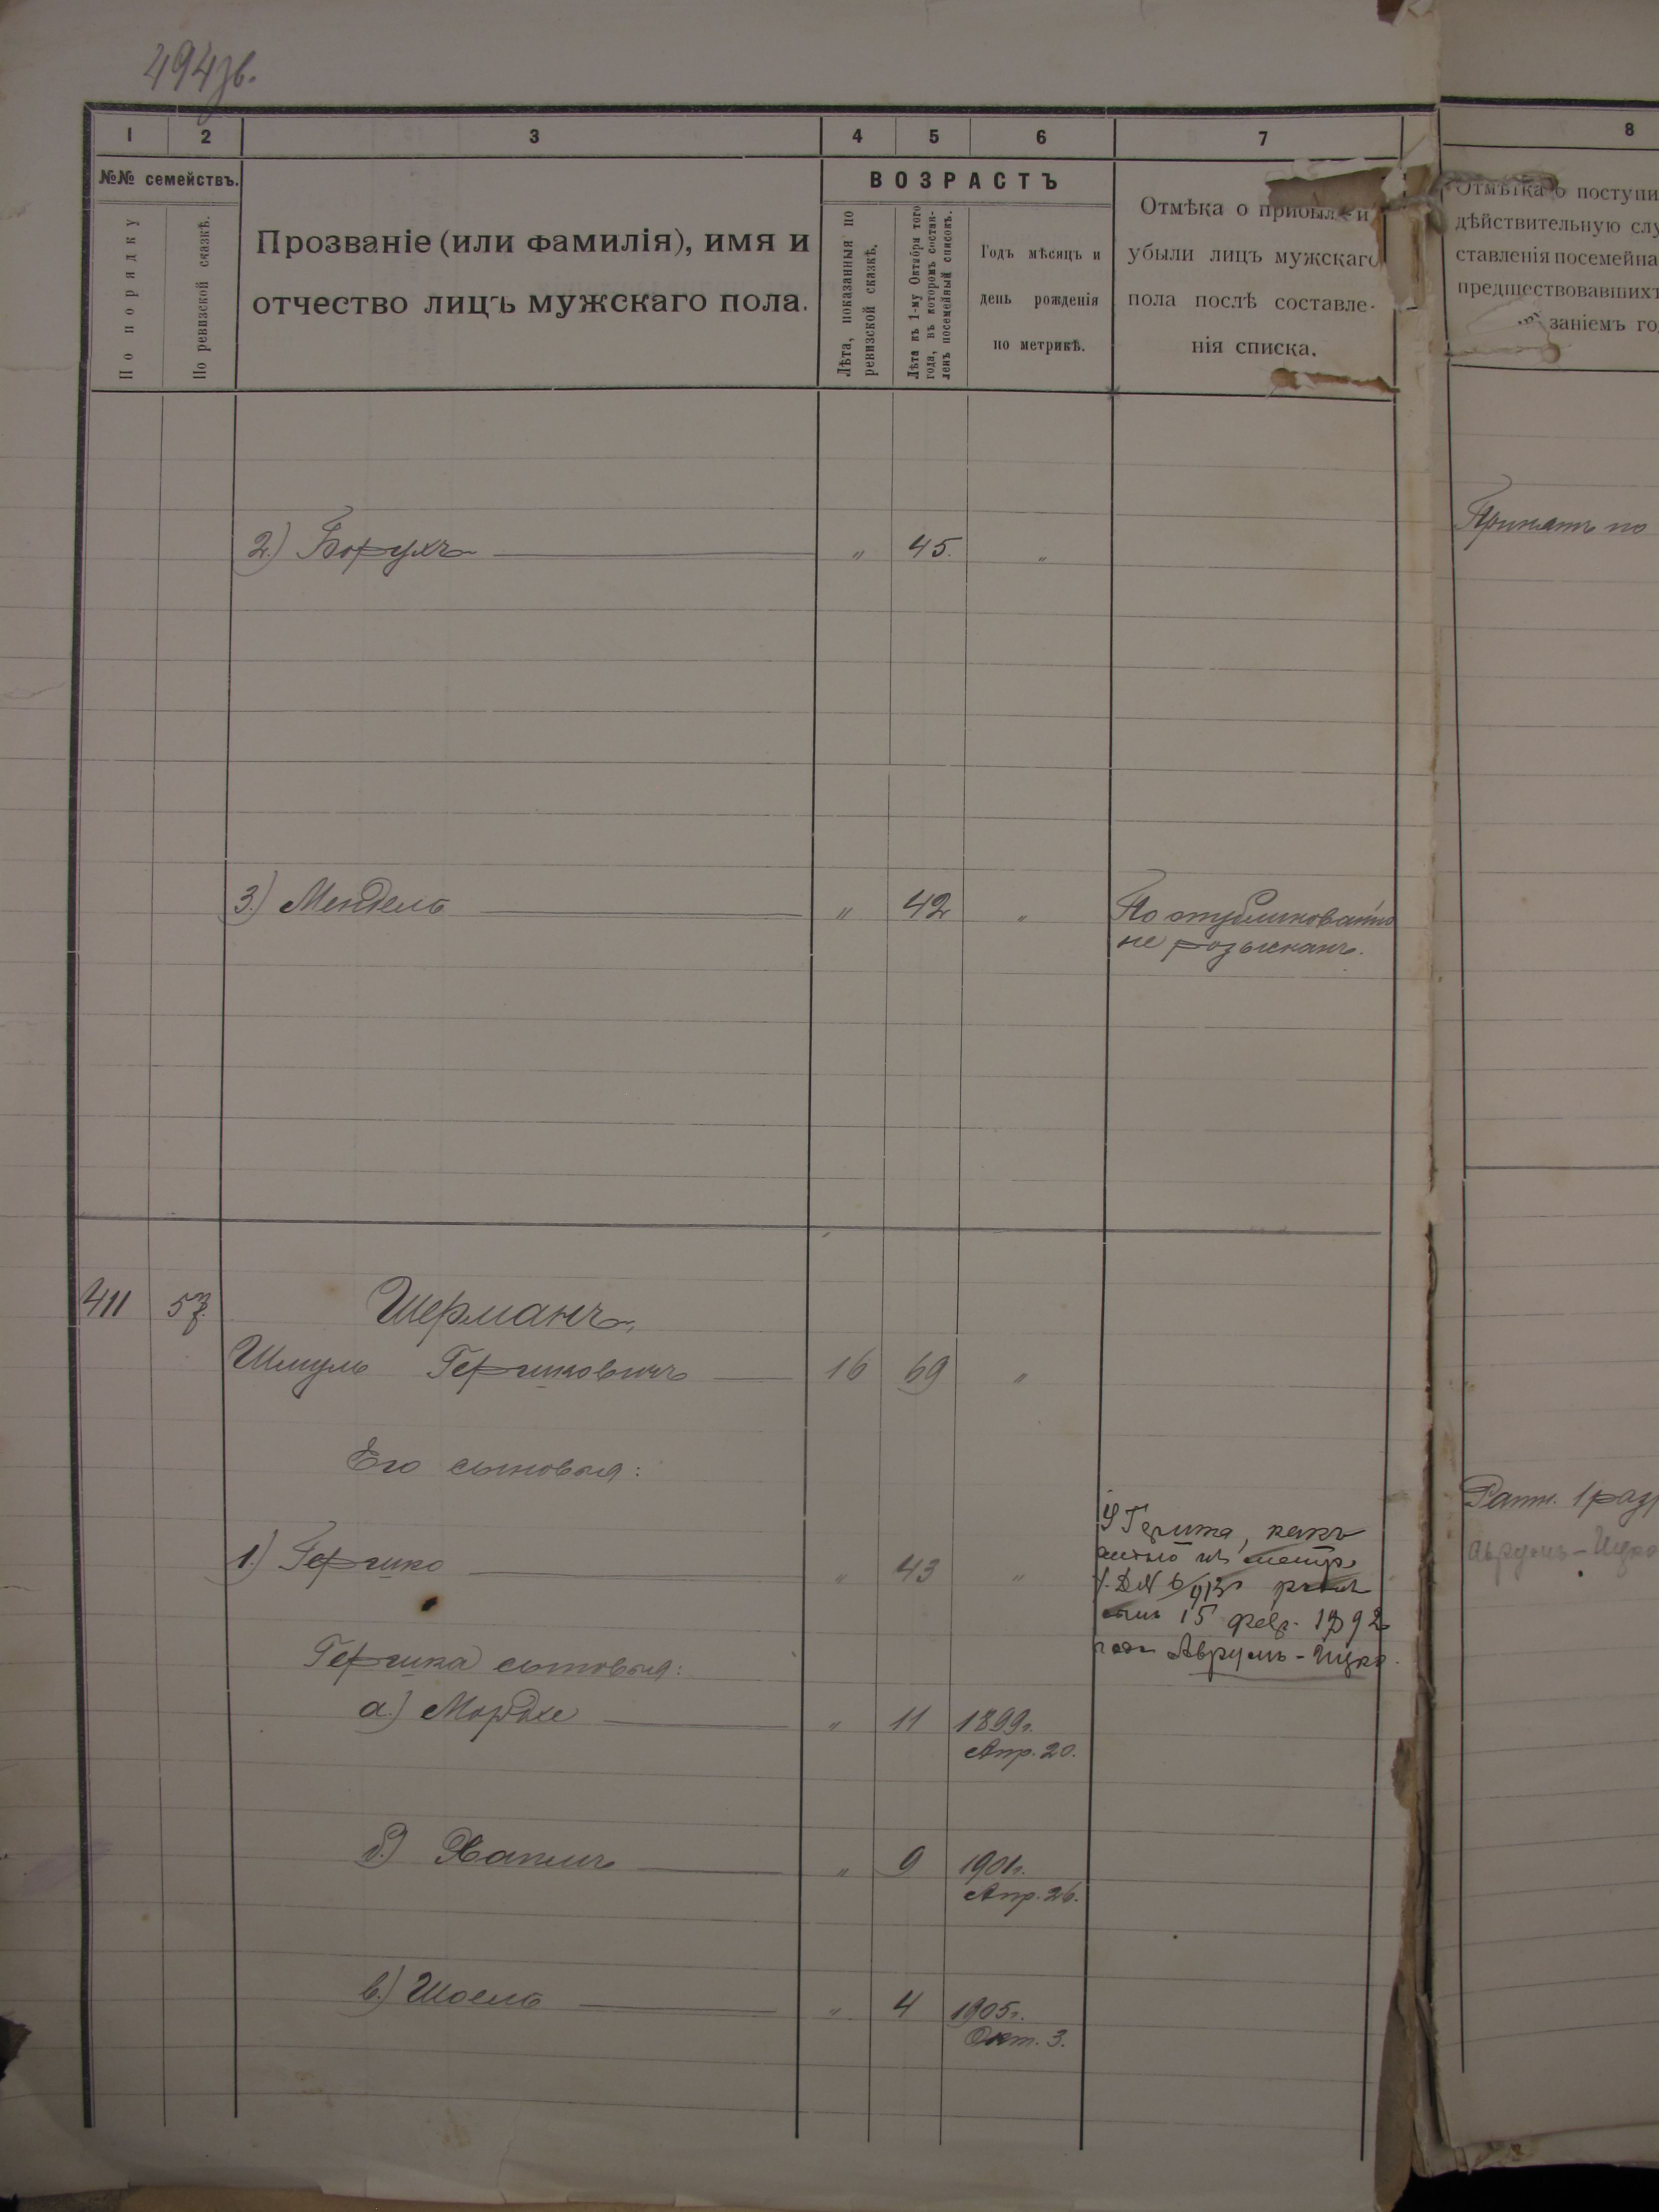 494зв.
1 2 3 4 5 6 7 8
№№ семействъ.
По порядку
По ревизской сказкѣ.
Прозваніе (или фамилія), имя и
отчество лицъ мужскаго пола.
ВОЗРАСТЪ
Лѣта, показанныя по
ревизской сказкѣ.
Лѣта къ 1-му Октября того
года, въ которомъ состав-
ленъ посемейный списокъ.
Годъ мѣсяцъ и
день рожденія
по метрикѣ.
Отмѣка о прибыли и
убыли лицъ мужскаго
пола послѣ составле-
нія списка.
Отмѣтка о поступи
дѣйствительную слу
ставленія посемейна
предшествовавшихъ
заніемъ го
2.) Борухъ — " 45. "
Принятъ по
3.) Мендель — " 42 "
По опубликованію
не розысканъ.
411 57.
Шерманъ,
Шмуль Гершковичъ — 16 69 "
Его сыновья:
1.) Гершко — " 43 "
У Гершка, какъ
15 февр. 1892
года Аврумъ-Ицко.
Ратн. 1 разр
Аврумъ-Ицко
Гершка сыновья:
а.) Мордхе — " 11 1899г.
Апр. 20.
б.) Хаимъ — " 9 1901г.
Апр. 26.
в.) Шоель — " 4 1905г.
Окт. 3.